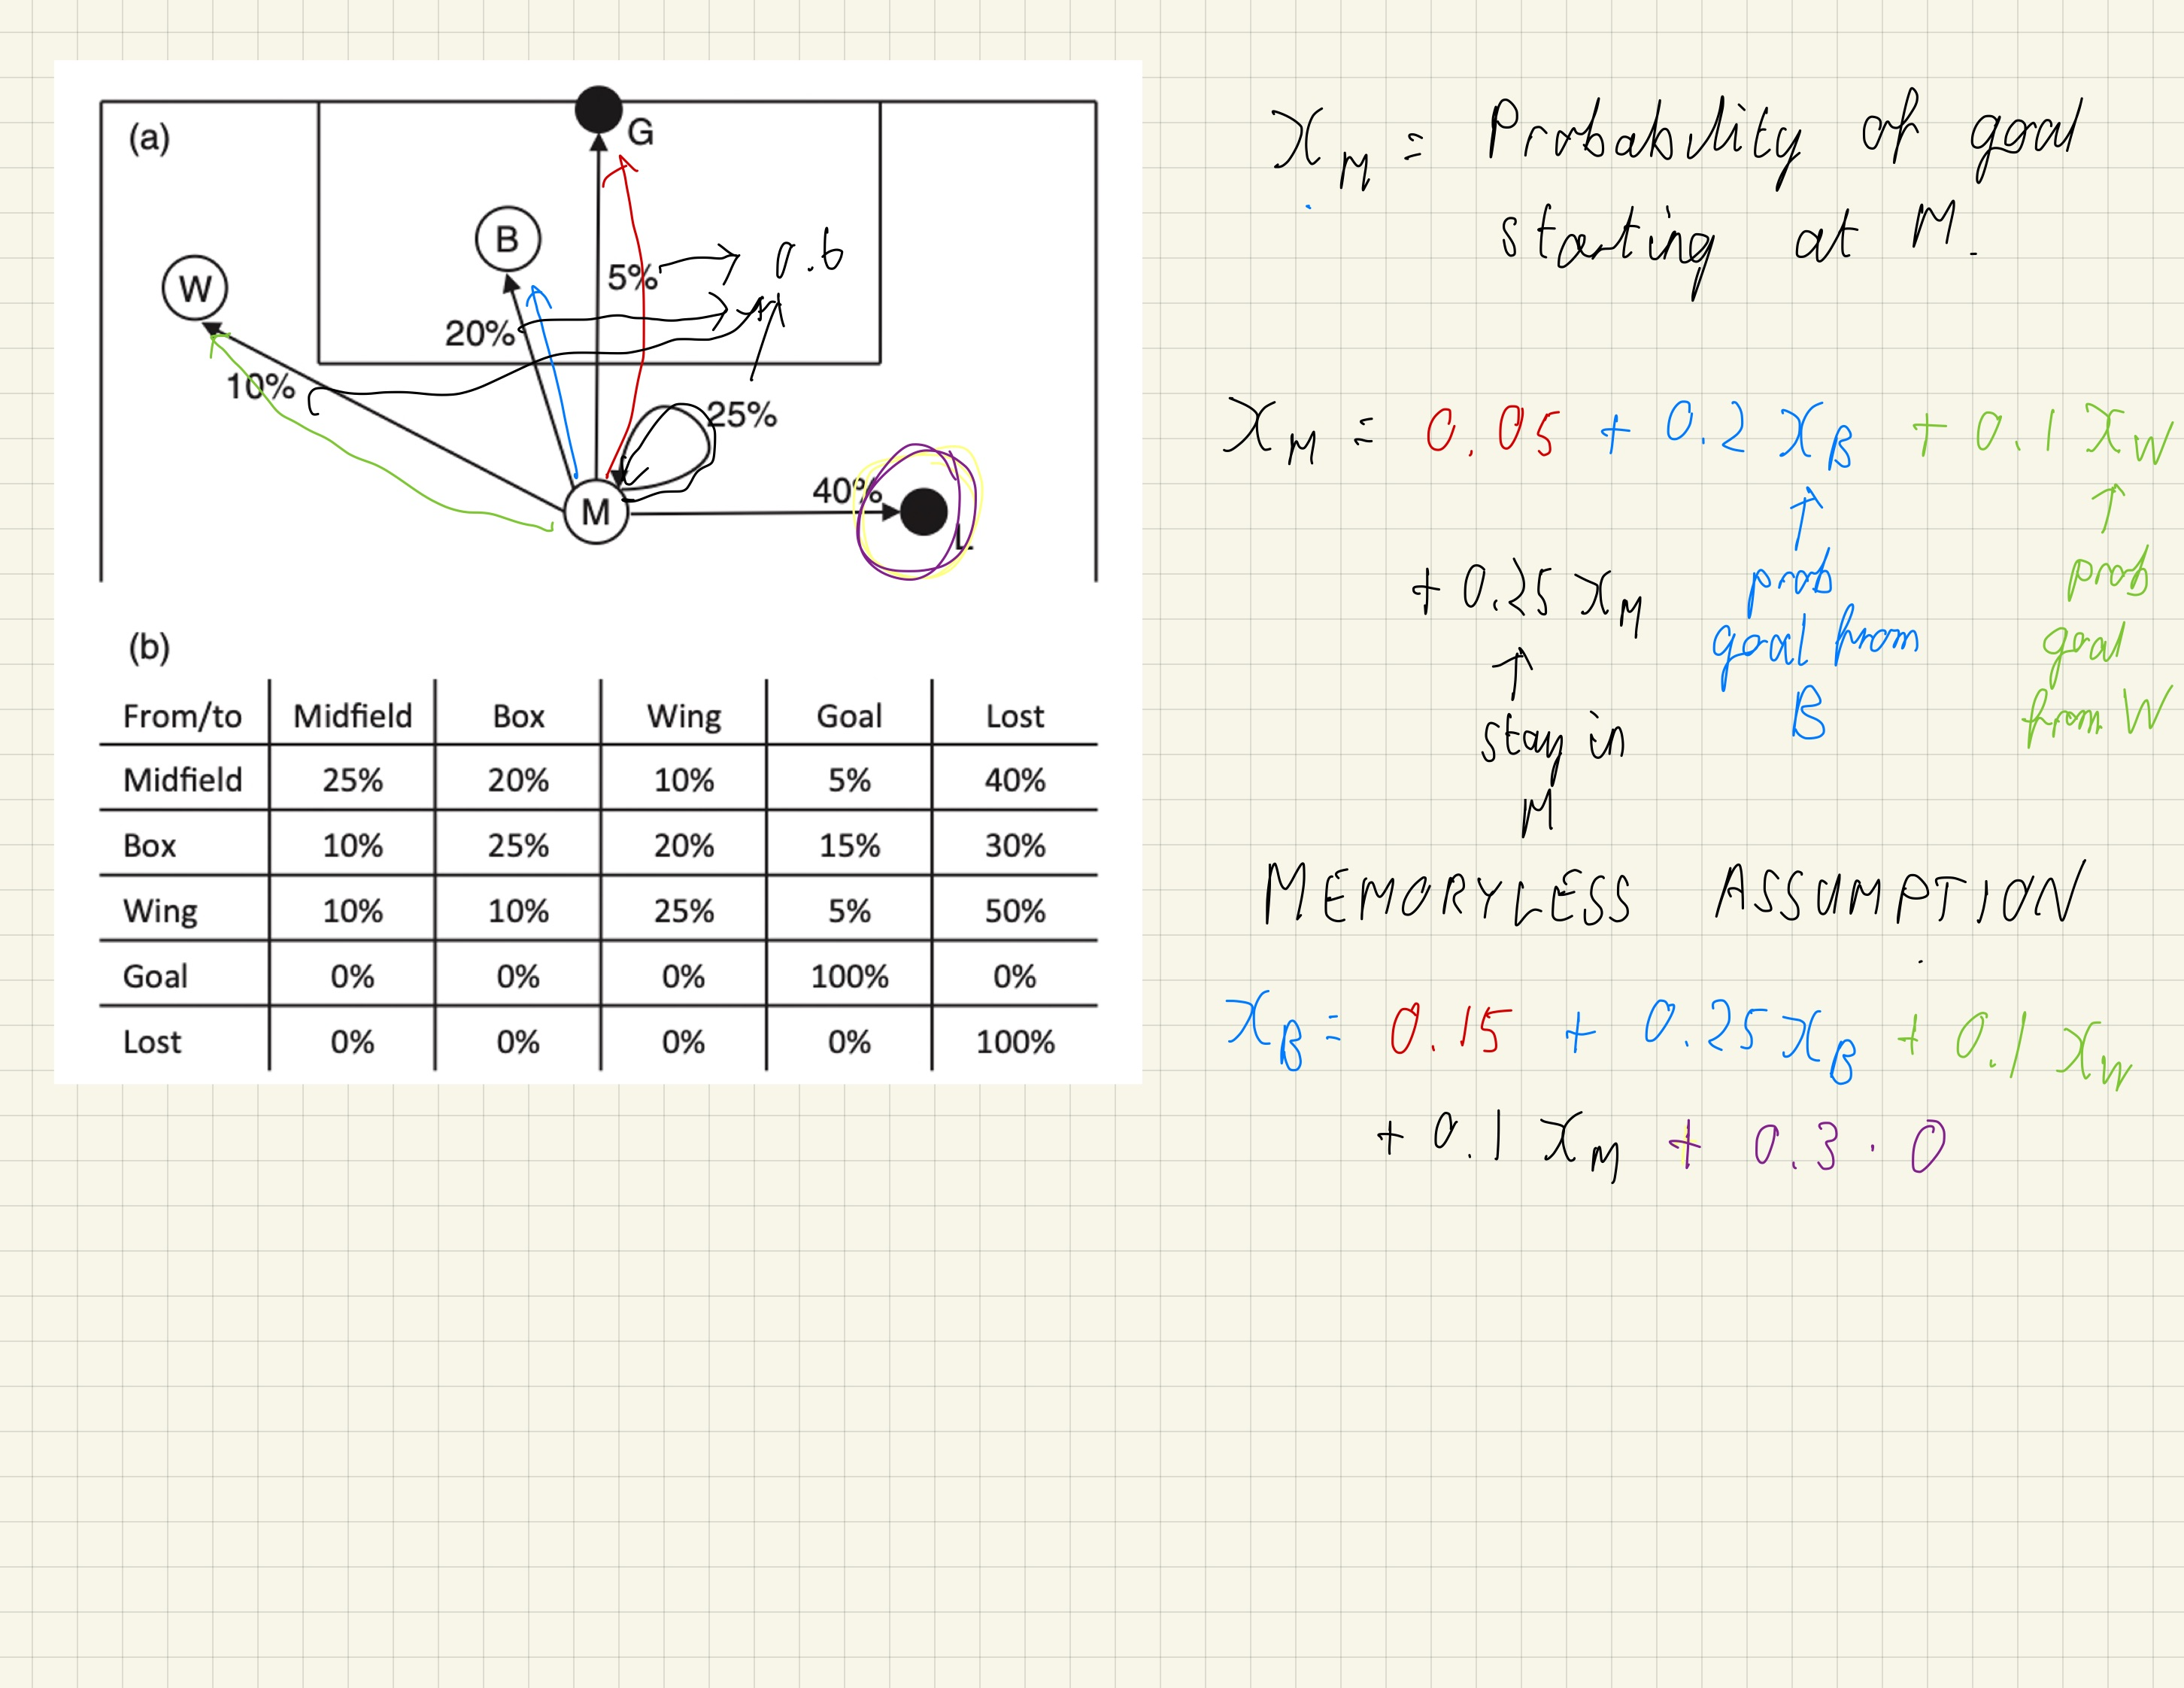 (a)
G
B
5% → 0.6
W
20%
10%
25%
40%
M
L
(b)
From/to Midfield Box Wing Goal Lost
Midfield 25% 20% 10% 5% 40%
Box 10% 25% 20% 15% 30%
Wing 10% 10% 25% 5% 50%
Goal 0% 0% 0% 100% 0%
Lost 0% 0% 0% 0% 100%
x_M = Probability of goal
starting at M.
x_M = 0.05 + 0.2 x_B + 0.1 x_W
+ 0.25 x_M
↑
stay in
M
↑
prob
goal from
B
↑
prob
goal
from W
MEMORYLESS ASSUMPTION
x_B = 0.15 + 0.25 x_B + 0.1 x_W
+ 0.1 x_M + 0.3 · 0